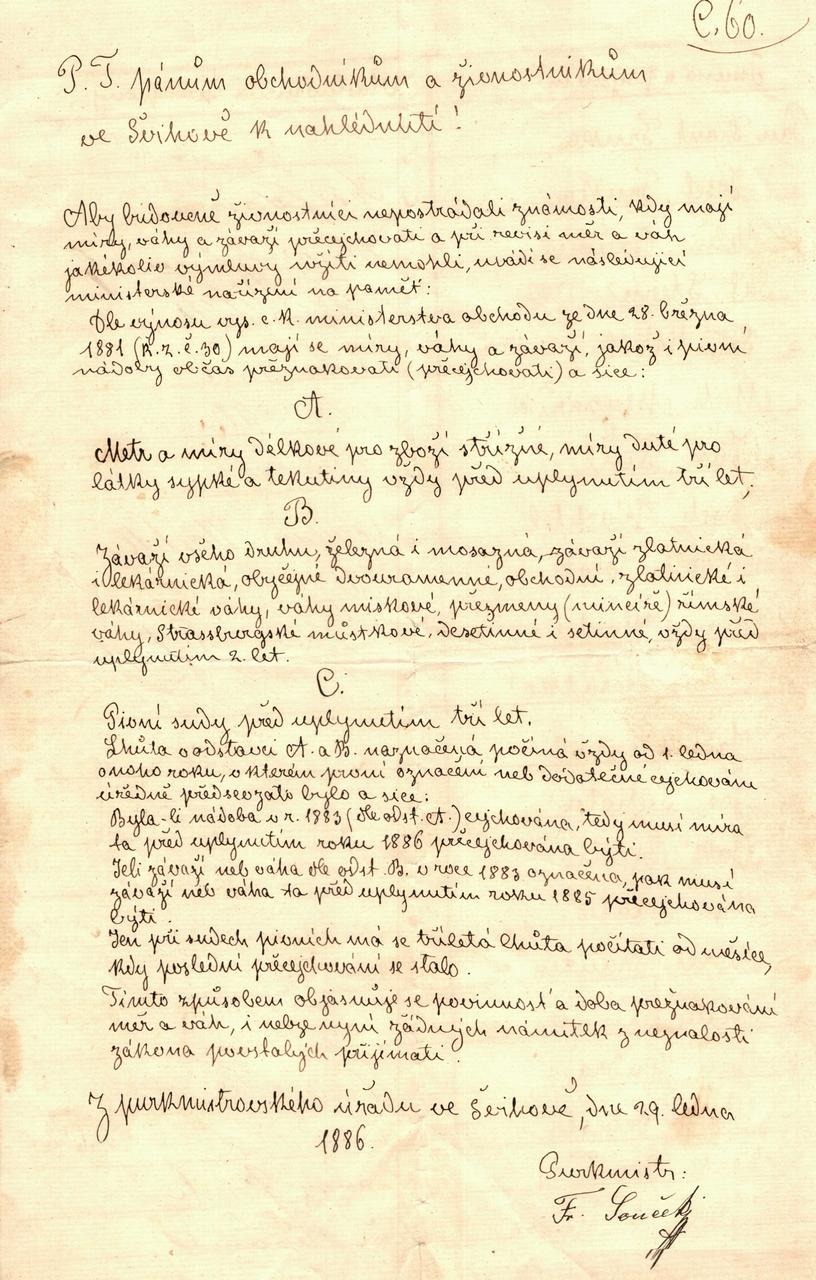 Č. 60.
P. T. pánům obchodníkům a živnostníkům
ve Švihově k nahlédnutí!
Aby budoucně živnostníci nepostrádali známosti, kdy mají
míry, váhy a závaží přecejchovati a při revisi měr a váh
jakékoliv výmluvy užíti nemohli, uvádí se následující
ministerské nařízení na paměť:
Dle výnosu vys. c. k. ministerstva obchodu ze dne 28. března
1881 (ř. z. č. 30) mají se míry, váhy a závaží, jakož i pivní
nádoby občas přeznakovati (přecejchovati) a sice:
A.
Metr a míry délkové pro zboží střižné, míry duté pro
látky sypké a tekutiny vždy před uplynutím tří let;
B.
Závaží všeho druhu, železná i mosazná, závaží zlatnická
i lekárnická, obyčejné dvouramenné, obchodní, zlatnické i
lekárnické váhy, váhy miskové, přezmeny (mincíře) římské
váhy, Strassburgské můstkové, desetinné i setinné, vždy před
uplynutím 2. let.
C.
Pivní sudy před uplynutím tří let.
Lhůta v odstavci A. a B. naznačená počíná vždy od 1. ledna
onoho roku, v kterém první označení neb dodatečné cejchování
úředně předsevzato bylo a sice:
Byla-li nádoba v r. 1883 (dle odst. A.) cejchována, tedy musí míra
ta před uplynutím roku 1886 přecejchována býti.
Jeli závaží neb váha dle odst. B. v roce 1883 označena, pak musí
závaží neb váha ta před uplynutím roku 1885 přecejchována
býti.
Jen při sudech pivních má se tříletá lhůta počítati od měsíce,
kdy poslední přecejchování se stalo.
Tímto způsobem objasňuje se povinnosť a doba přeznakování
měr a váh, i nelze nyní žádných námitek z neznalosti
zákona povstalých přijímati.
Z purkmistrovského úřadu ve Švihově, dne 29. ledna
1886.
Purkmistr:
Fr. Souček